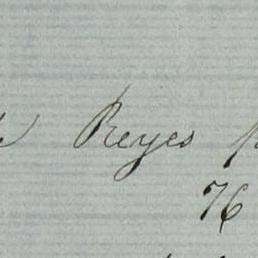 Reyes
76